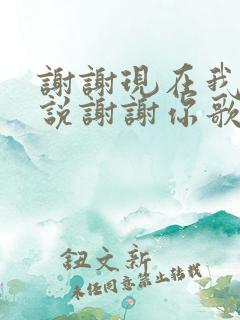 謝謝現在我
說謝謝你歌
鈕文新
未經同意禁止轉載